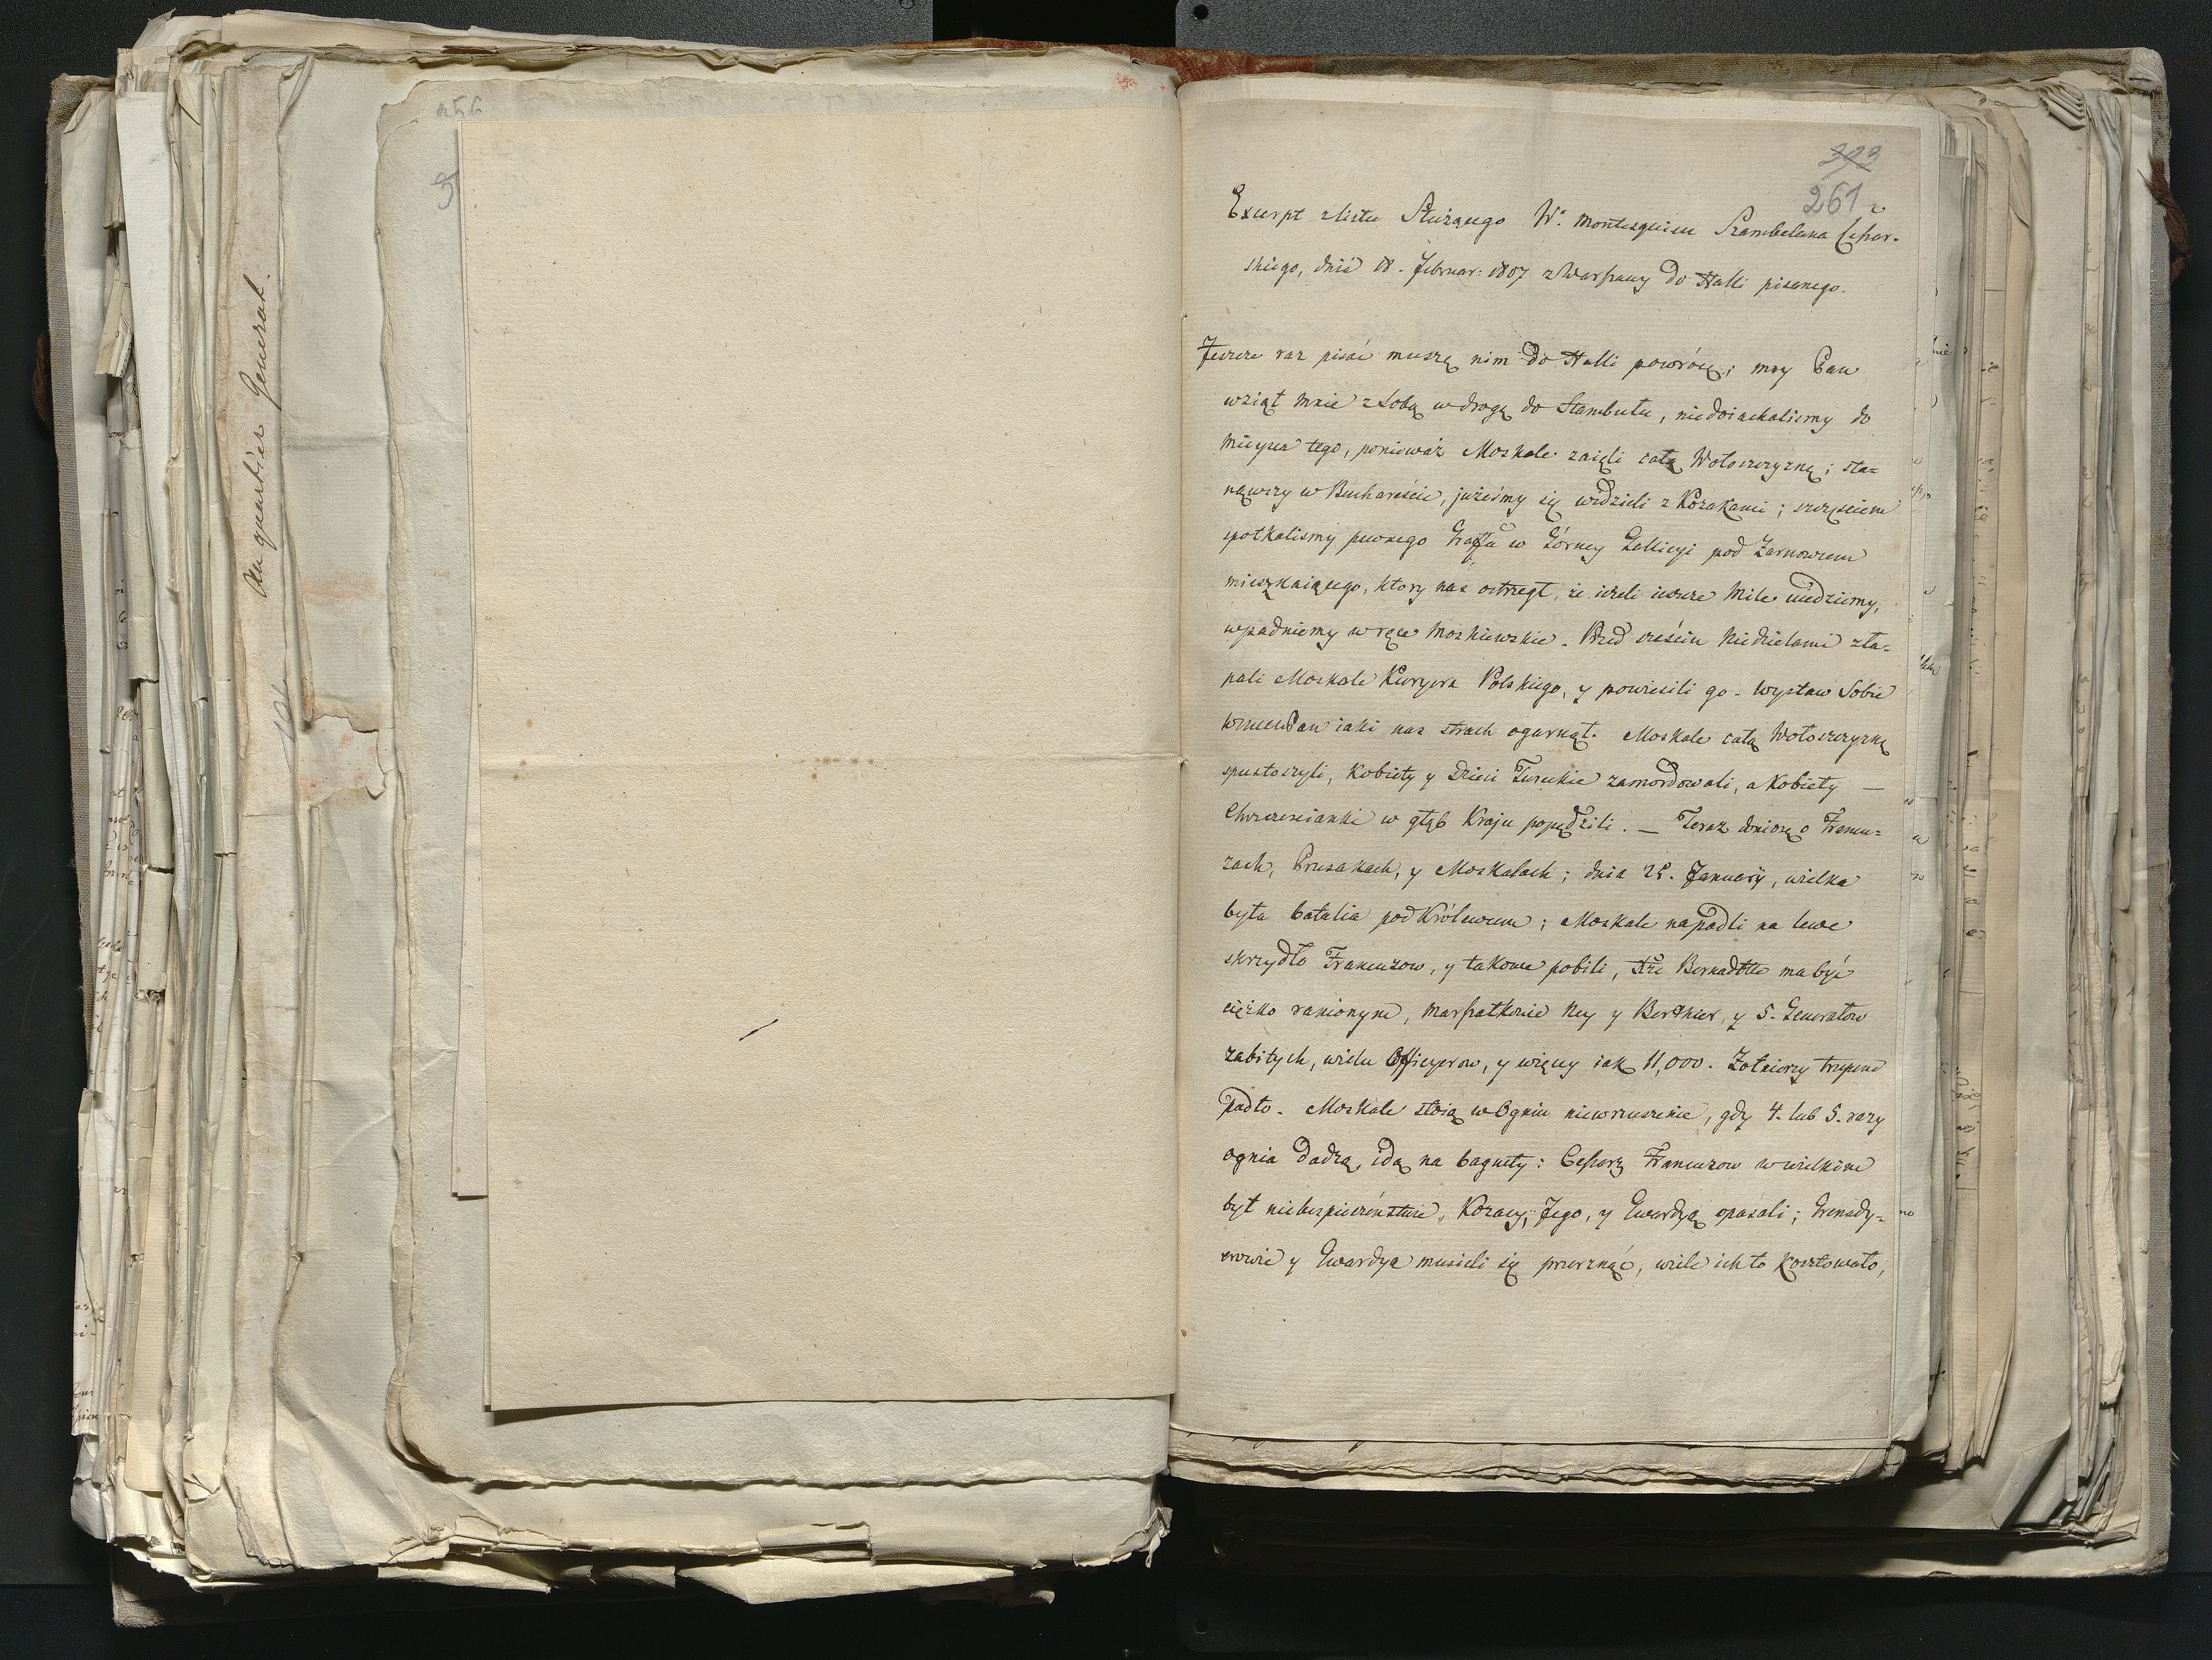 Au quartier General.
256
323
261
Excerpt z listu Służącego W° Montesquieu Szambelana Cesar-
skiego, dnia 18. Februar: 1807 z Warszawy do Halli pisanego.
Jeszcze raz pisać muszę nim do Halli powrócę; moy Pan
wziął mnie z sobą w drogę do Stambułu, niedoiachalismy do
mieysca tego, ponieważ Moskale zaięli całą Wołoszczyznę; sta=
nąwszy w Buchareście, jużeśmy się widzieli z Kozakami; szczęściem
spotkalismy pewnego Graffa w Górney Gallicyi pod Zarnowcem
mieszkaiącego, ktory nas ostrzegł, że ieżeli ieszcze Mile uiedziemy,
wpadniemy w ręce Moskiewskie. Przed sześciu Niedzielami zła=
pali Moskale Kuryera Polskiego, y powiesili go. Wystaw Sobie
Pan iaki nas strach ogarnął. Moskale całą Wołoszczyznę
spustoszyli, Kobiety y Dzieci Tureckie zamordowali, a Kobiety —
Chrzescianki w głąb Kraju popędzili. — Teraz doniosę o Francu=
zach, Prusakach, y Moskalach; dnia 25. January, wielka
była batalia pod Królewcem; Moskale napadli na lewe
skrzydło Francuzow, y takowe pobili, Bernadotte ma być
ciężko ranionym, Marszałkowie Ney y Berthier, y 5. Generałow
zabitych, wielu Officyerow, y więcey iak 11,000. Żołnierzy trupem
padło. Moskale stoią w Ogniu niewzruszenie, gdy 4. lub 5. razy
ognia dadzą, idą na bagnety: Cesarz Francuzow w wielkim
był niebezpieczeństwie, Kozacy, Jego, y Gwardyą opasali; Grenady=
erowie y Gwardya musieli się przerznąć, wiele ich to kosztowało,